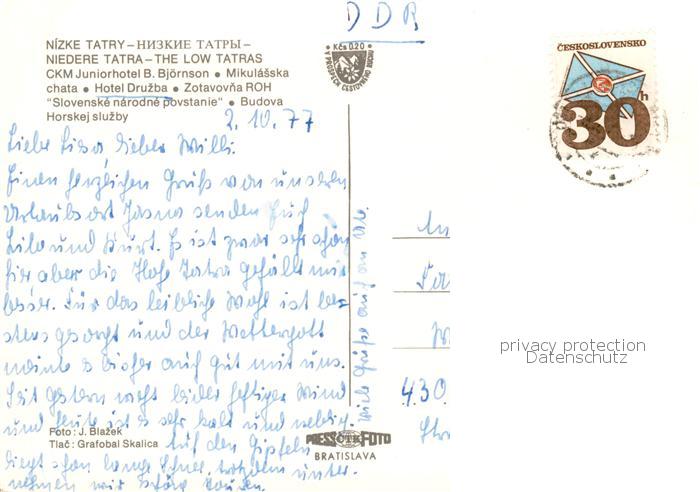 DDR
NÍZKE TATRY – НИЗКИЕ ТАТРЫ –
NIEDERE TATRA – THE LOW TATRAS
CKM Juniorhotel B. Björnson ● Mikulášska
chata ● Hotel Družba ● Zotavovňa ROH
"Slovenské národné povstanie" ● Budova
Horskej služby
Kčs 0,20
V PROSPECH CESTOVNÉHO RUCHU
ČESKOSLOVENSKO
30 h
2.10.77
Liebe Lisa lieber Willi.
Einen herzlichen Gruß von unserem
Urlaubsort Jasna senden Euch
Lilo und Kurt. Es ist zwar sehr schön
hier aber die Hohe Tatra gefällt mir
besser. Für das leibliche Wohl ist be-
stens gesorgt und der Wettergott
meinte es bisher auch gut mit uns.
Seit gestern weht leider heftiger Wind
und heute ist es sehr kalt und neblig.
Auf den Gipfeln
liegt schon lange Schnee, trotzdem unter-
nehmen wir schöne Touren.
Viele Grüße auch an
430
Foto: J. Blažek
Tlač: Grafobal Skalica
PRESS ČTK FOTO
BRATISLAVA
privacy protection
Datenschutz